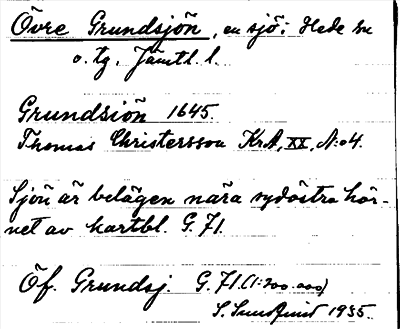 Övre Grundsjön, en sjö i Hede sn
o. tg, Jämtl. l.
Grundsiön 1645.
Thomas Christersson KrA, XX, N:o 4.
Sjön är belägen nära sydöstra hör-
net av kartbl. G. 71.
Öf. Grundsj. G. 71 (1:200.000)
S. Sundquist 1935.